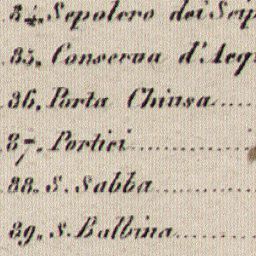 84. Sepolcro dei Scip
85. Conserva d'Acq
86. Porta Chiusa.....
87. Portici..............
88. S. Sabba............
89. S. Balbina..........